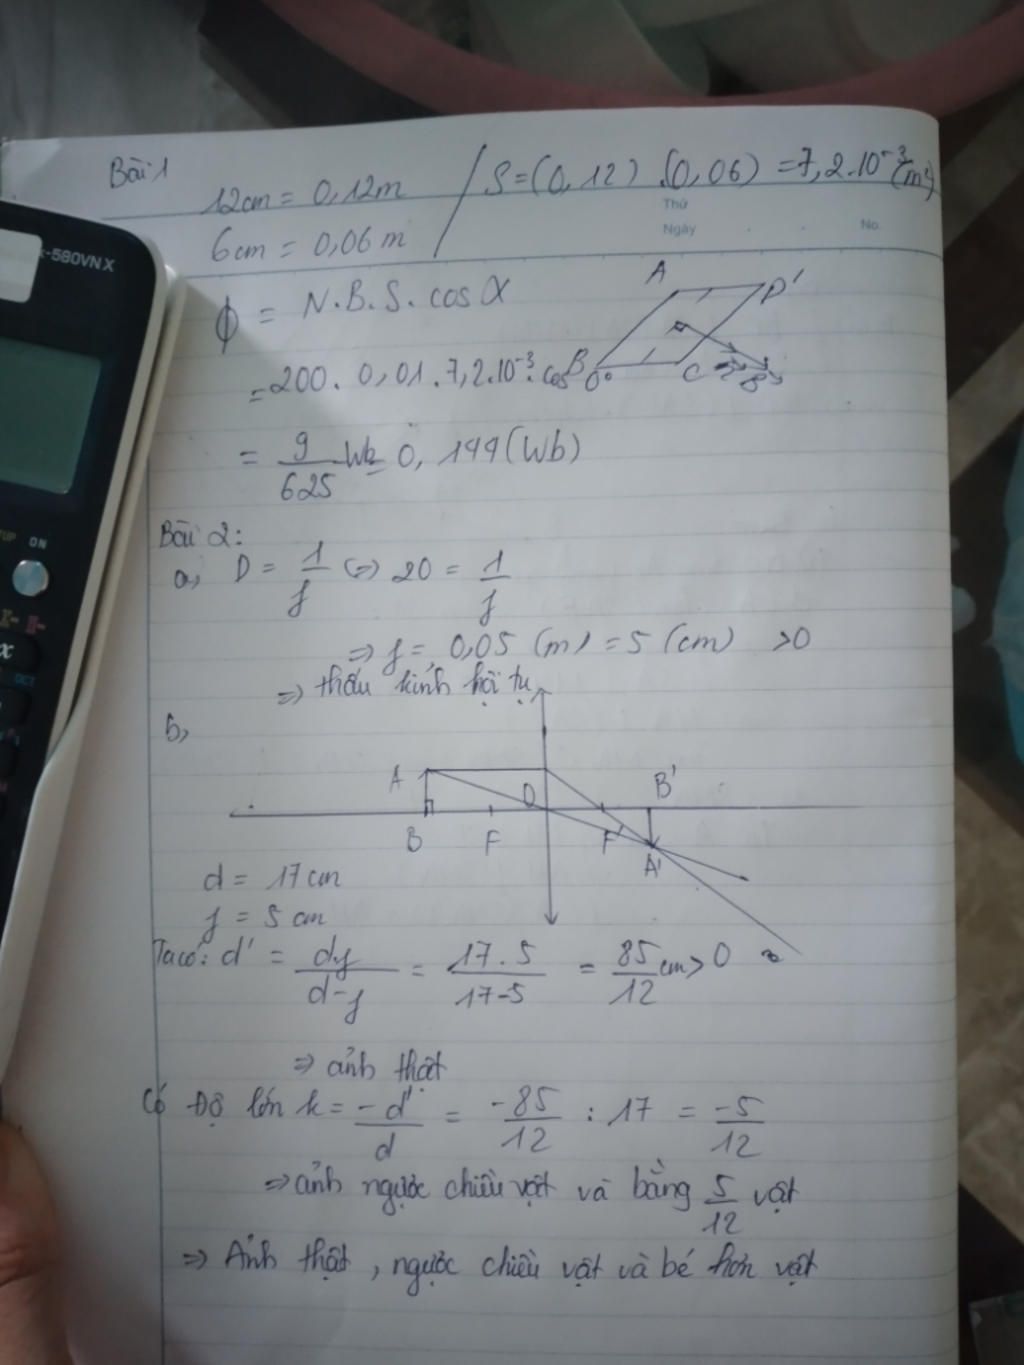 Bài 1
12cm = 0,12m / S = (0,12).(0,06) = 7,2.10⁻³ (m²)
Thứ
6cm = 0,06m
Ngày No.
-580VN X
A D'
ϕ = N.B.S.cosα
= 200. 0,01. 7,2.10⁻³. cos 0°
B C
= 9/625 Wb = 0,144 (Wb)
Bài 2:
ON
a, D = 1/f (=) 20 = 1/f
=> f = 0,05 (m) = 5 (cm) >0
=> thấu kính hội tụ
b,
A O B'
B F F' A'
d = 17 cm
f = 5 cm
Ta có: d' = df/d-f = 17.5/17-5 = 85/12 cm > 0
=> ảnh thật
Có Độ lớn k = -d'/d = -85/12 : 17 = -5/12
=> ảnh ngược chiều vật và bằng 5/12 vật
=> Ảnh thật, ngược chiều vật và bé hơn vật